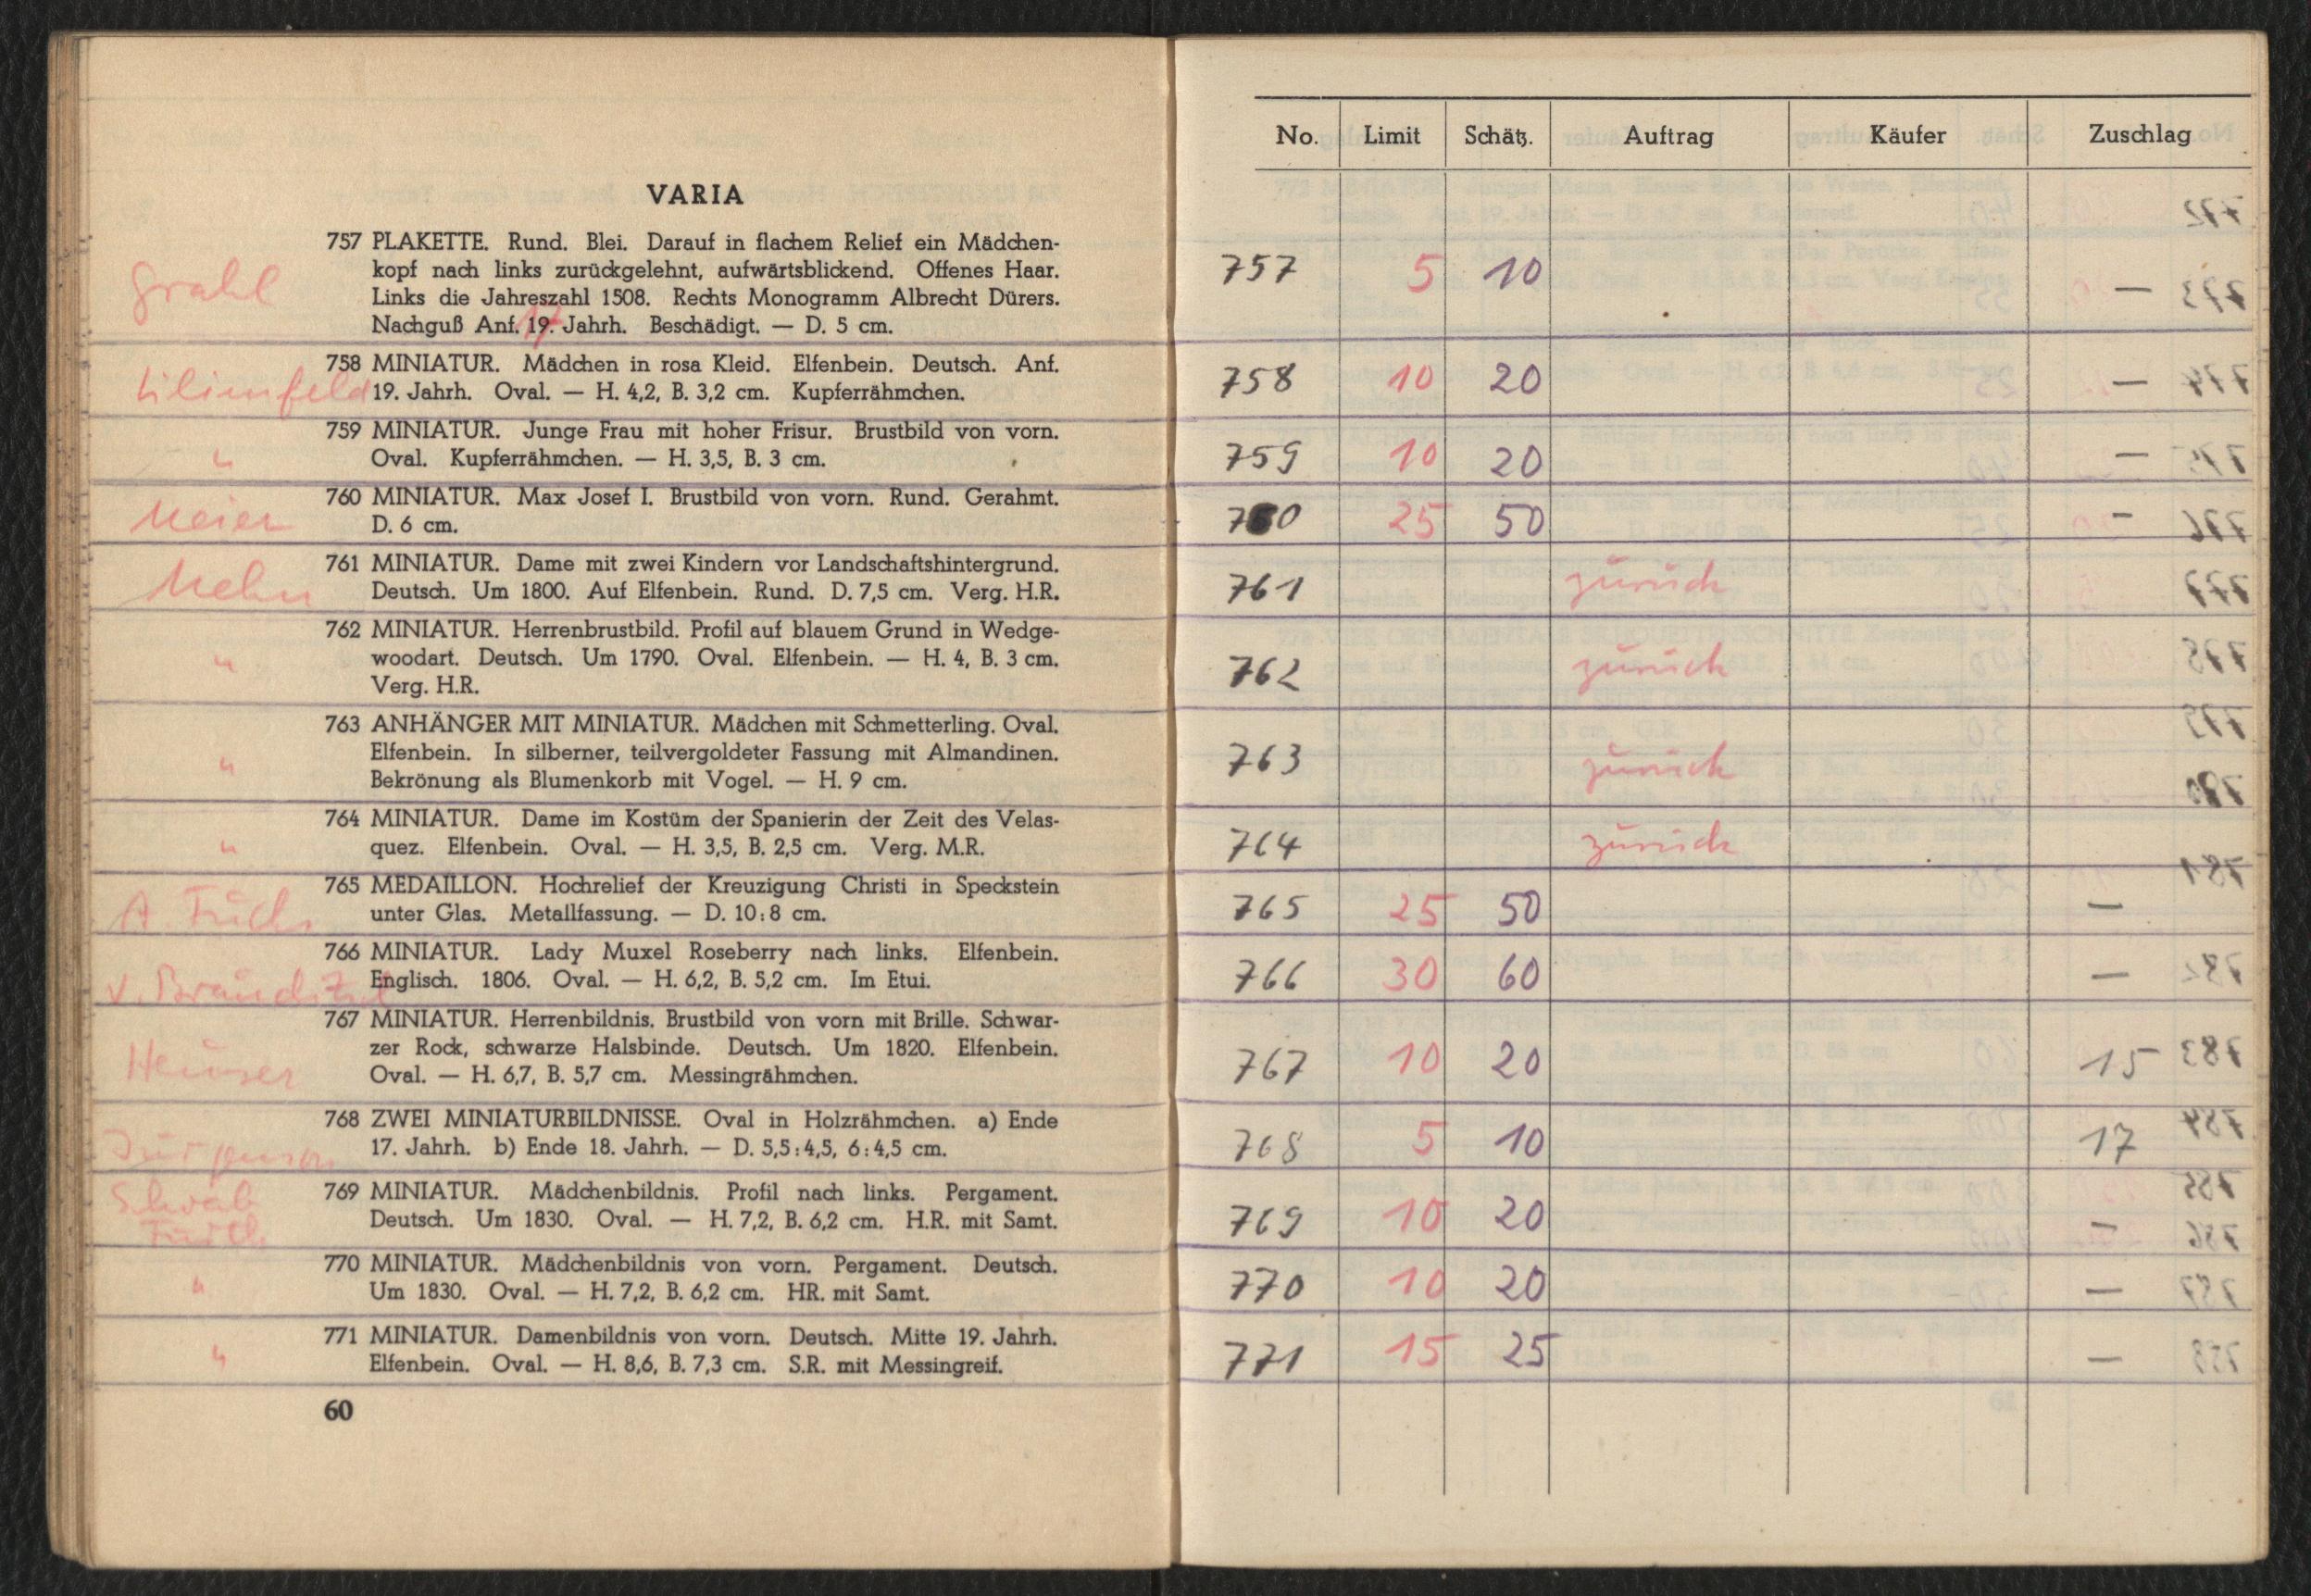 VARIA
Grahl
757 PLAKETTE. Rund. Blei. Darauf in flachem Relief ein Mädchen-
kopf nach links zurückgelehnt, aufwärtsblickend. Offenes Haar.
Links die Jahreszahl 1508. Rechts Monogramm Albrecht Dürers.
Nachguß Anf. 19. Jahrh. Beschädigt. — D. 5 cm.
17
Lilienfeld
758 MINIATUR. Mädchen in rosa Kleid. Elfenbein. Deutsch. Anf.
19. Jahrh. Oval. — H. 4,2, B. 3,2 cm. Kupferrähmchen.
"
759 MINIATUR. Junge Frau mit hoher Frisur. Brustbild von vorn.
Oval. Kupferrähmchen. — H. 3,5, B. 3 cm.
Meier
760 MINIATUR. Max Josef I. Brustbild von vorn. Rund. Gerahmt.
D. 6 cm.
761 MINIATUR. Dame mit zwei Kindern vor Landschaftshintergrund.
Deutsch. Um 1800. Auf Elfenbein. Rund. D. 7,5 cm. Verg. H.R.
"
762 MINIATUR. Herrenbrustbild. Profil auf blauem Grund in Wedge-
woodart. Deutsch. Um 1790. Oval. Elfenbein. — H. 4, B. 3 cm.
Verg. H.R.
"
763 ANHÄNGER MIT MINIATUR. Mädchen mit Schmetterling. Oval.
Elfenbein. In silberner, teilvergoldeter Fassung mit Almandinen.
Bekrönung als Blumenkorb mit Vogel. — H. 9 cm.
"
764 MINIATUR. Dame im Kostüm der Spanierin der Zeit des Velas-
quez. Elfenbein. Oval. — H. 3,5, B. 2,5 cm. Verg. M.R.
A. Fuchs
765 MEDAILLON. Hochrelief der Kreuzigung Christi in Speckstein
unter Glas. Metallfassung. — D. 10:8 cm.
766 MINIATUR. Lady Muxel Roseberry nach links. Elfenbein.
Englisch. 1806. Oval. — H. 6,2, B. 5,2 cm. Im Etui.
Heuser
767 MINIATUR. Herrenbildnis. Brustbild von vorn mit Brille. Schwar-
zer Rock, schwarze Halsbinde. Deutsch. Um 1820. Elfenbein.
Oval. — H. 6,7, B. 5,7 cm. Messingrähmchen.
768 ZWEI MINIATURBILDNISSE. Oval in Holzrähmchen. a) Ende
17. Jahrh. b) Ende 18. Jahrh. — D. 5,5:4,5, 6:4,5 cm.
Schwab
Fürth
769 MINIATUR. Mädchenbildnis. Profil nach links. Pergament.
Deutsch. Um 1830. Oval. — H. 7,2, B. 6,2 cm. H.R. mit Samt.
"
770 MINIATUR. Mädchenbildnis von vorn. Pergament. Deutsch.
Um 1830. Oval. — H. 7,2, B. 6,2 cm. HR. mit Samt.
"
771 MINIATUR. Damenbildnis von vorn. Deutsch. Mitte 19. Jahrh.
Elfenbein. Oval. — H. 8,6, B. 7,3 cm. S.R. mit Messingreif.
60
No. Limit Schätz. Auftrag Käufer Zuschlag
772
757 5 10 — 773
758 10 20 — 774
759 10 20 — 775
760 25 50 - 776
761 zurück 777
762 zurück 778
763 zurück 779
780
764 zurück
781
765 25 50 —
766 30 60 — 782
767 10 20 15 783
768 5 10 17 784
785
769 10 20 — 786
770 10 20 — 787
771 15 25 — 788